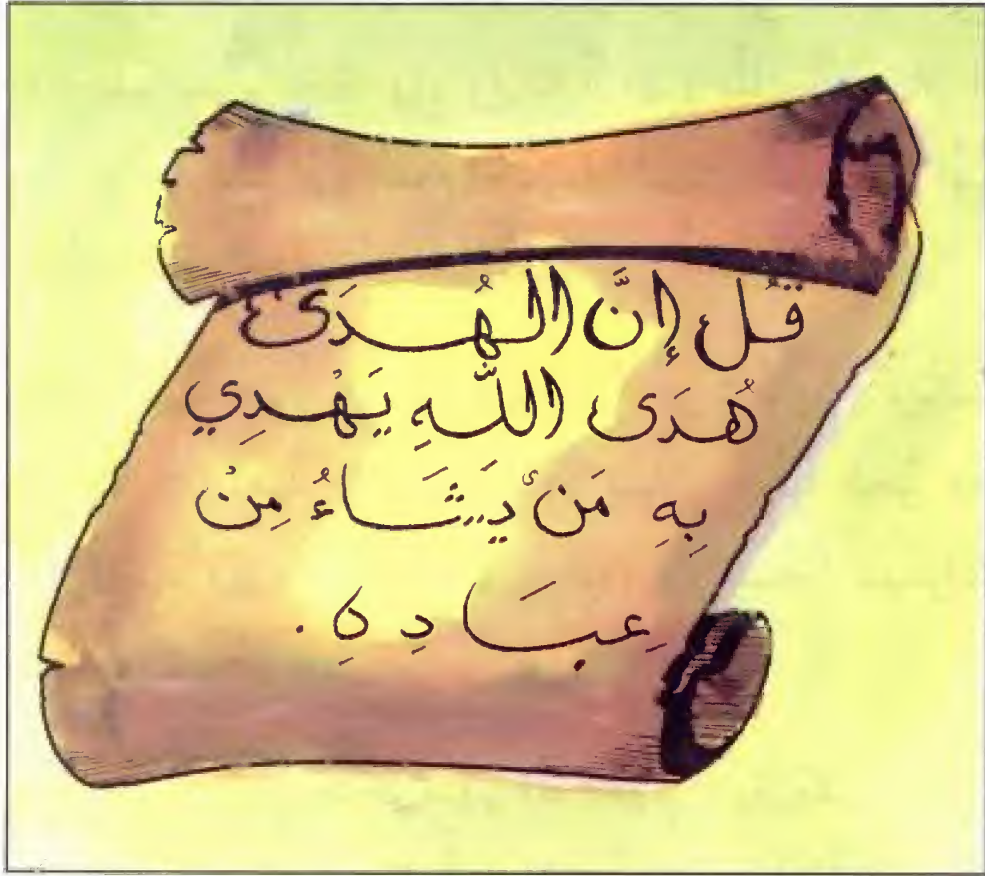 قُل إِنَّ الهُدَىٰ
هُدَى اللَّهِ يَهْدِي
بِهِ مَنْ يَشَاءُ مِنْ
عِبَادِهِ.